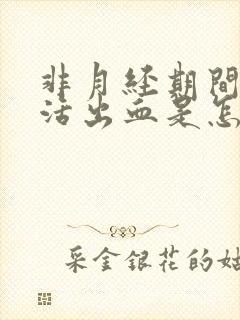 非月经期間
活出血是怎
采金銀花的姑